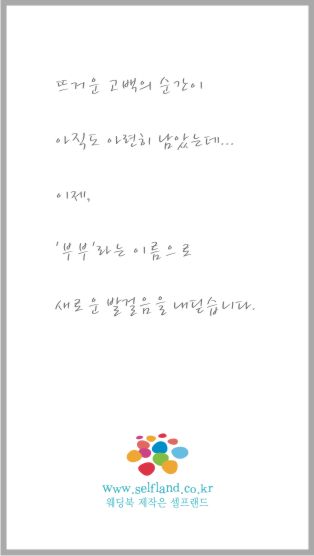 뜨거운 고백의 순간이
아직도 아련히 남았는데...
이제,
'부부'라는 이름으로
새로운 발걸음을 내딛습니다.
www.selfland.co.kr
웨딩북 제작은 셀프랜드